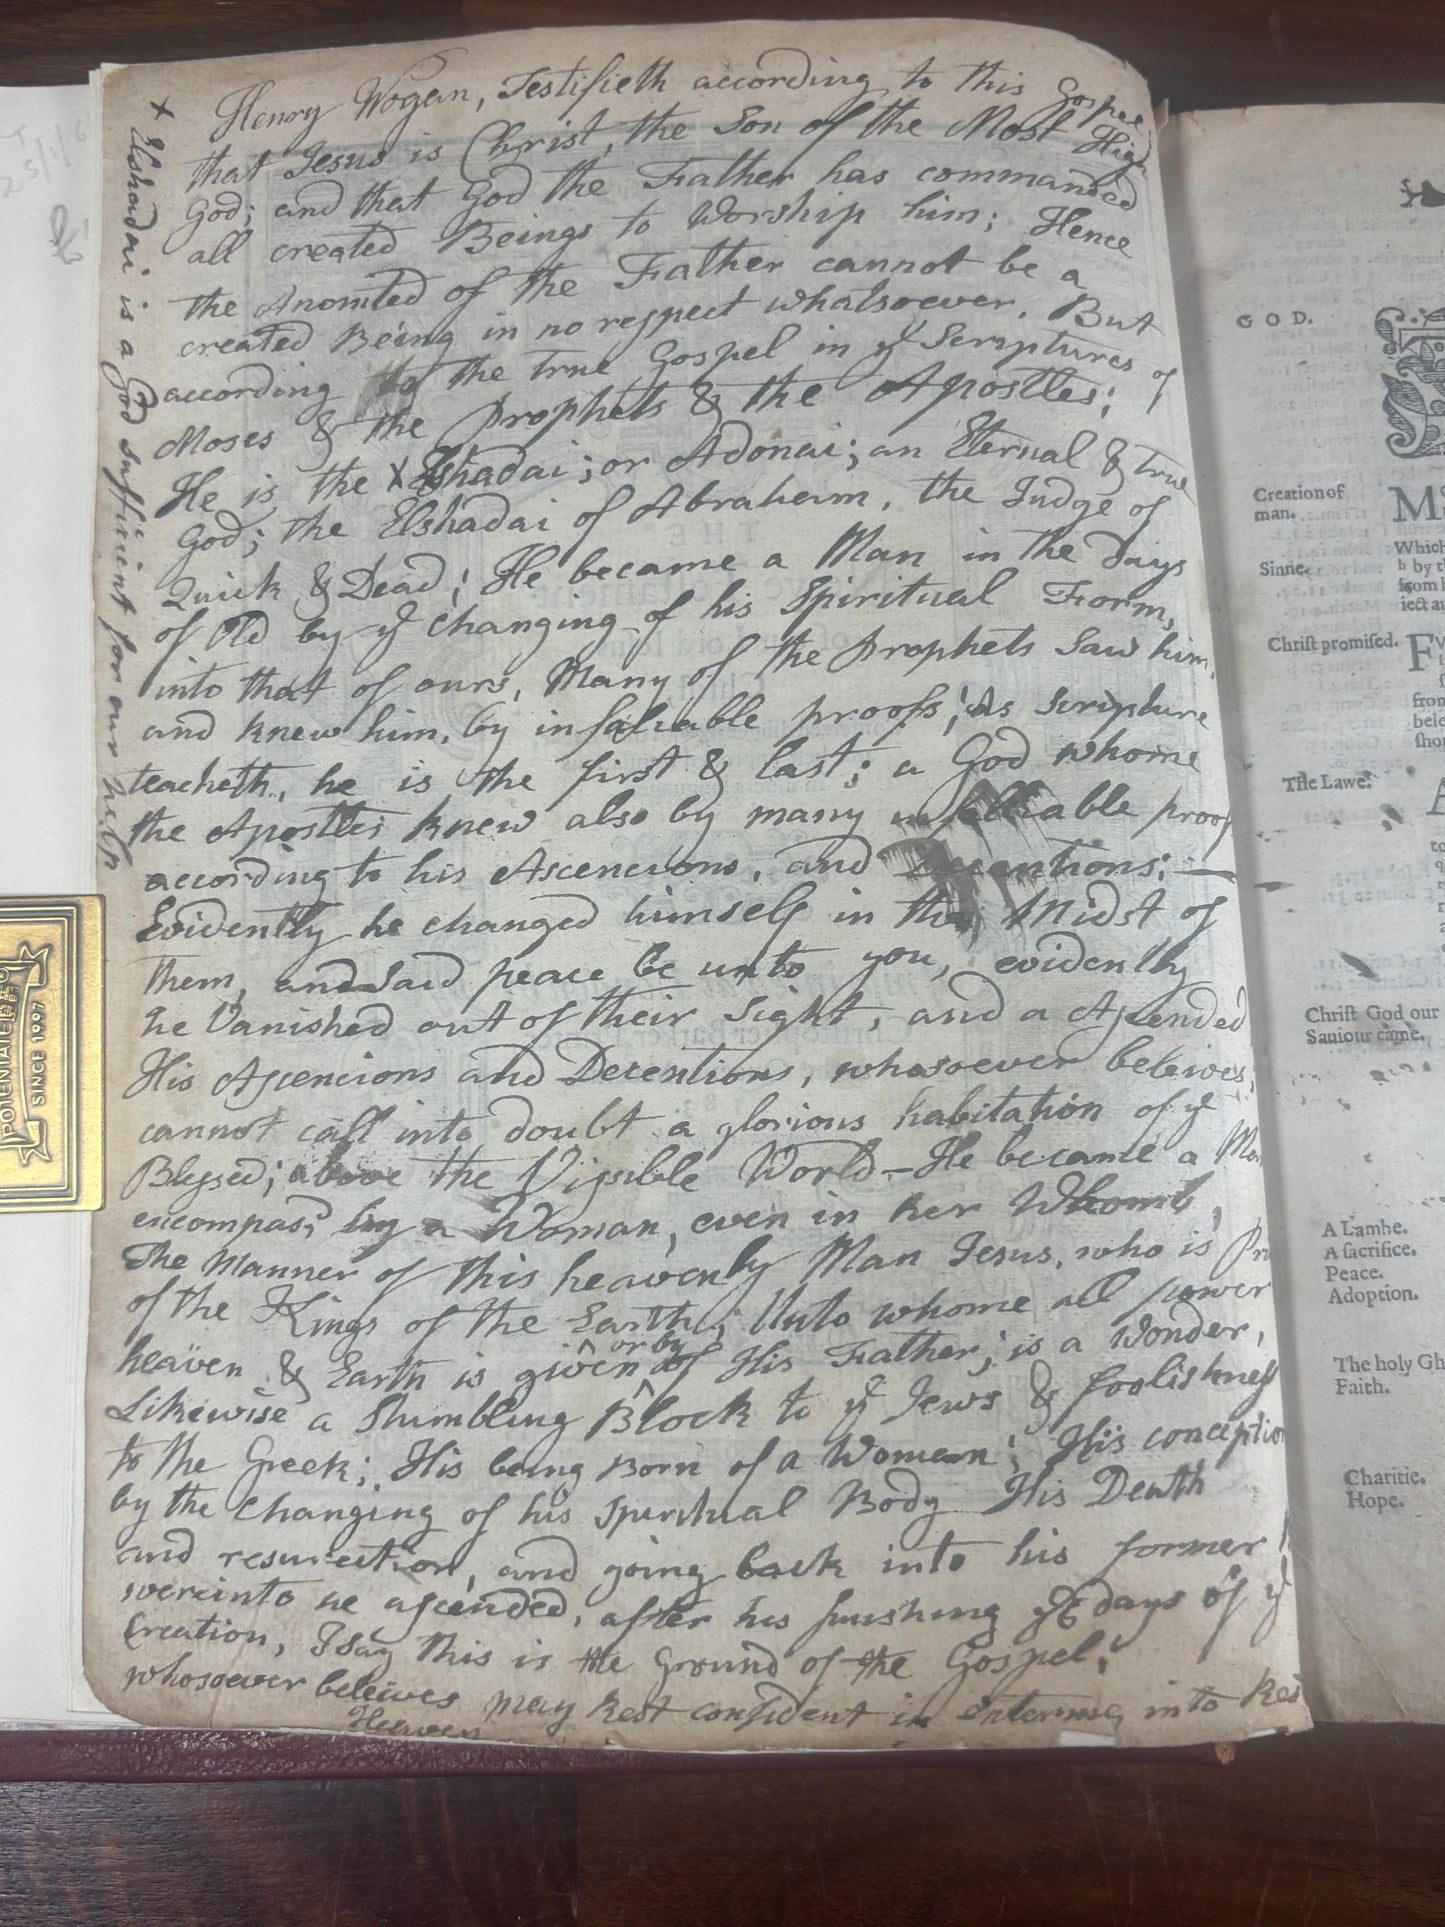 Henry Wogan, Testifieth according to this Gospel
that Jesus is Christ, the Son of the Most High
God; and that God the Father has commanded
all created Beings to Worship him; Hence
the Anointed of the Father cannot be a
created Being in no respect whatsoever. But
according to the true Gospel in ye Scriptures of
Moses & the Prophets & the Apostles;
He is the x Elshadai; or Adonai; an Eternal & true
God; the Elshadai of Abraham, the Judge of
Quick & Dead; He became a Man in the Days
of Old by ye changing of his Spiritual Form,
into that of ours, Many of the Prophets Saw him
and knew him, by infaliable proofs; As Scripture
teacheth, he is the first & last; a God whome
the Apostles knew also by many infalliable proof
according to his Ascencions, and Decentions;
Evidently he changed himself in the Midst of
them, and Said peace be unto you, evidently
he Vanished out of their Sight, and a Ascended
His Ascencions and Decentions, whosoever beleives,
cannot call into doubt a glorious habitation of ye
Blessed; above the Vissible World - He became a Man
encompass'd by a Woman, even in her Whomb,
The Manner of this heavenly Man Jesus, who is
of the Kings of the Earth; Unto whome all power
heaven & Earth is given of His Father; is a Wonder,
or by
Likewise a Stumbling Block to ye Jews & foolishness
to the Greek; His being Born of a Woman; His conception
by the Changing of his Spiritual Body His Death
and resurection, and going back into his former
wereinto he ascended, after his finishing ye 6 days of ye
Creation, I Say this is the Ground of the Gospel;
whosoever beleives may Rest confident in entering into Rest
Heaven
x Elshadai is a God sufficient for our help
POTENTIA
SINCE 1997
GOD.
Creation of
man.
Which
Sinne.
Christ promised.
The Lawe.
Christ God our
Sauiour came.
A Lambe.
A sacrifice.
Peace.
Adoption.
The holy Gh
Faith.
Charitie.
Hope.